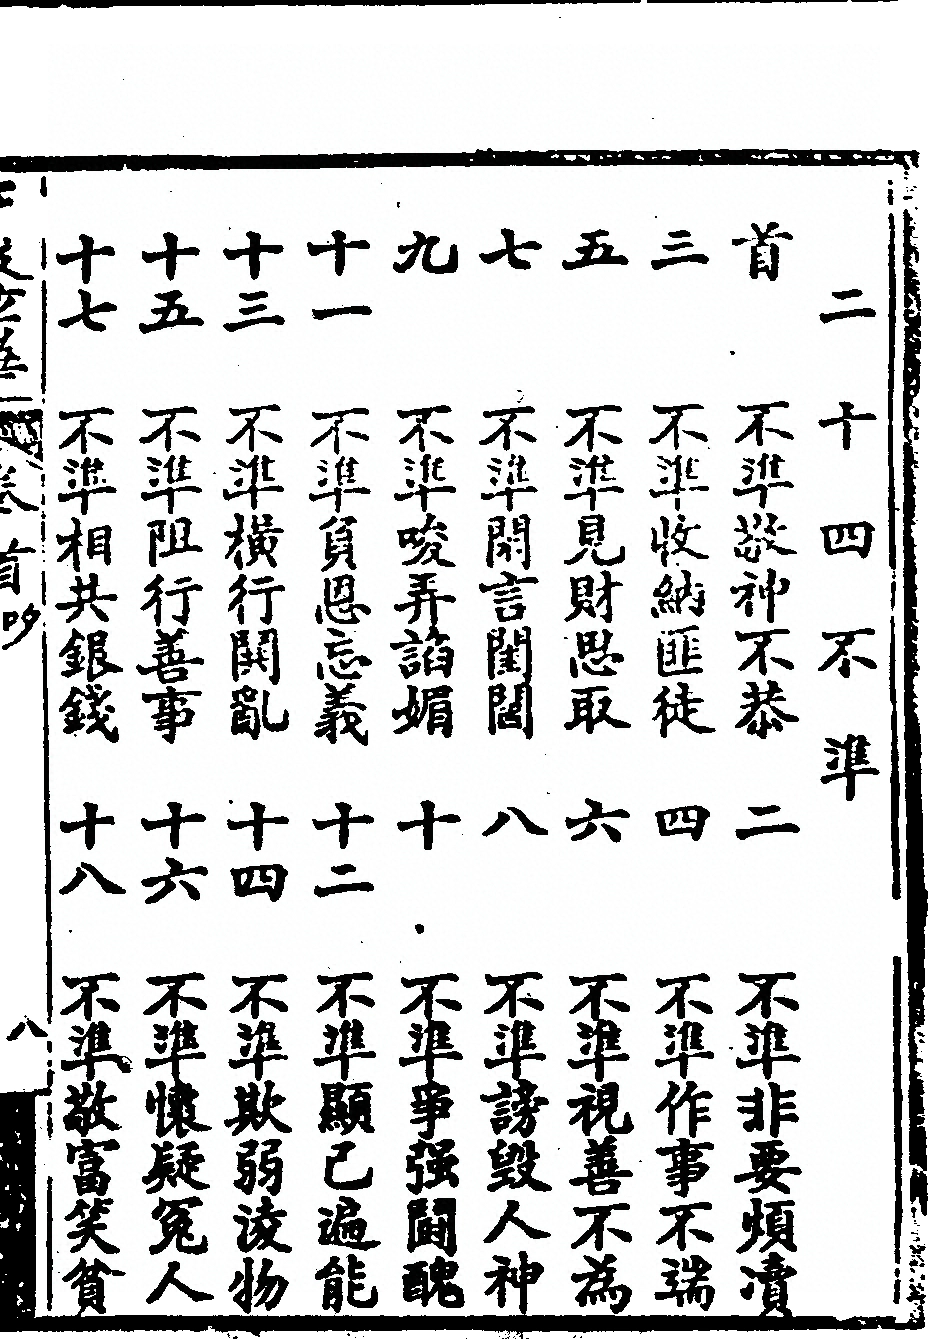 二十四不準
首 不準敬神不恭 二 不準非要煩瀆
三 不準收納匪徒 四 不準作事不端
五 不準見財思取 六 不準視善不為
七 不準閑言閨閫 八 不準謗毀人神
九 不準唆弄諂媚 十 不準爭强鬪醜
十一 不準負恩忘義 十二 不準顯己遍能
十三 不準橫行鬪亂 十四 不準欺弱淩物
十五 不準阻行善事 十六 不準懷疑冤人
十七 不準相共銀錢 十八 不準敬富笑貧
卷首 八